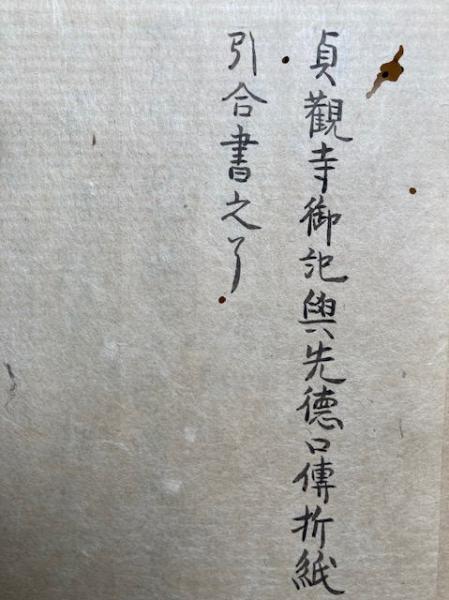 貞觀寺御記與先德口傳折紙
引合書之了